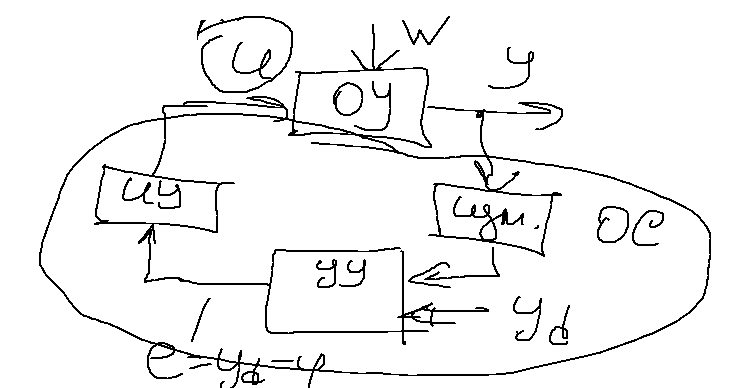 u
W
ОУ
y
ИУ
изм.
ОС
УУ
y_d
e = y_d - y